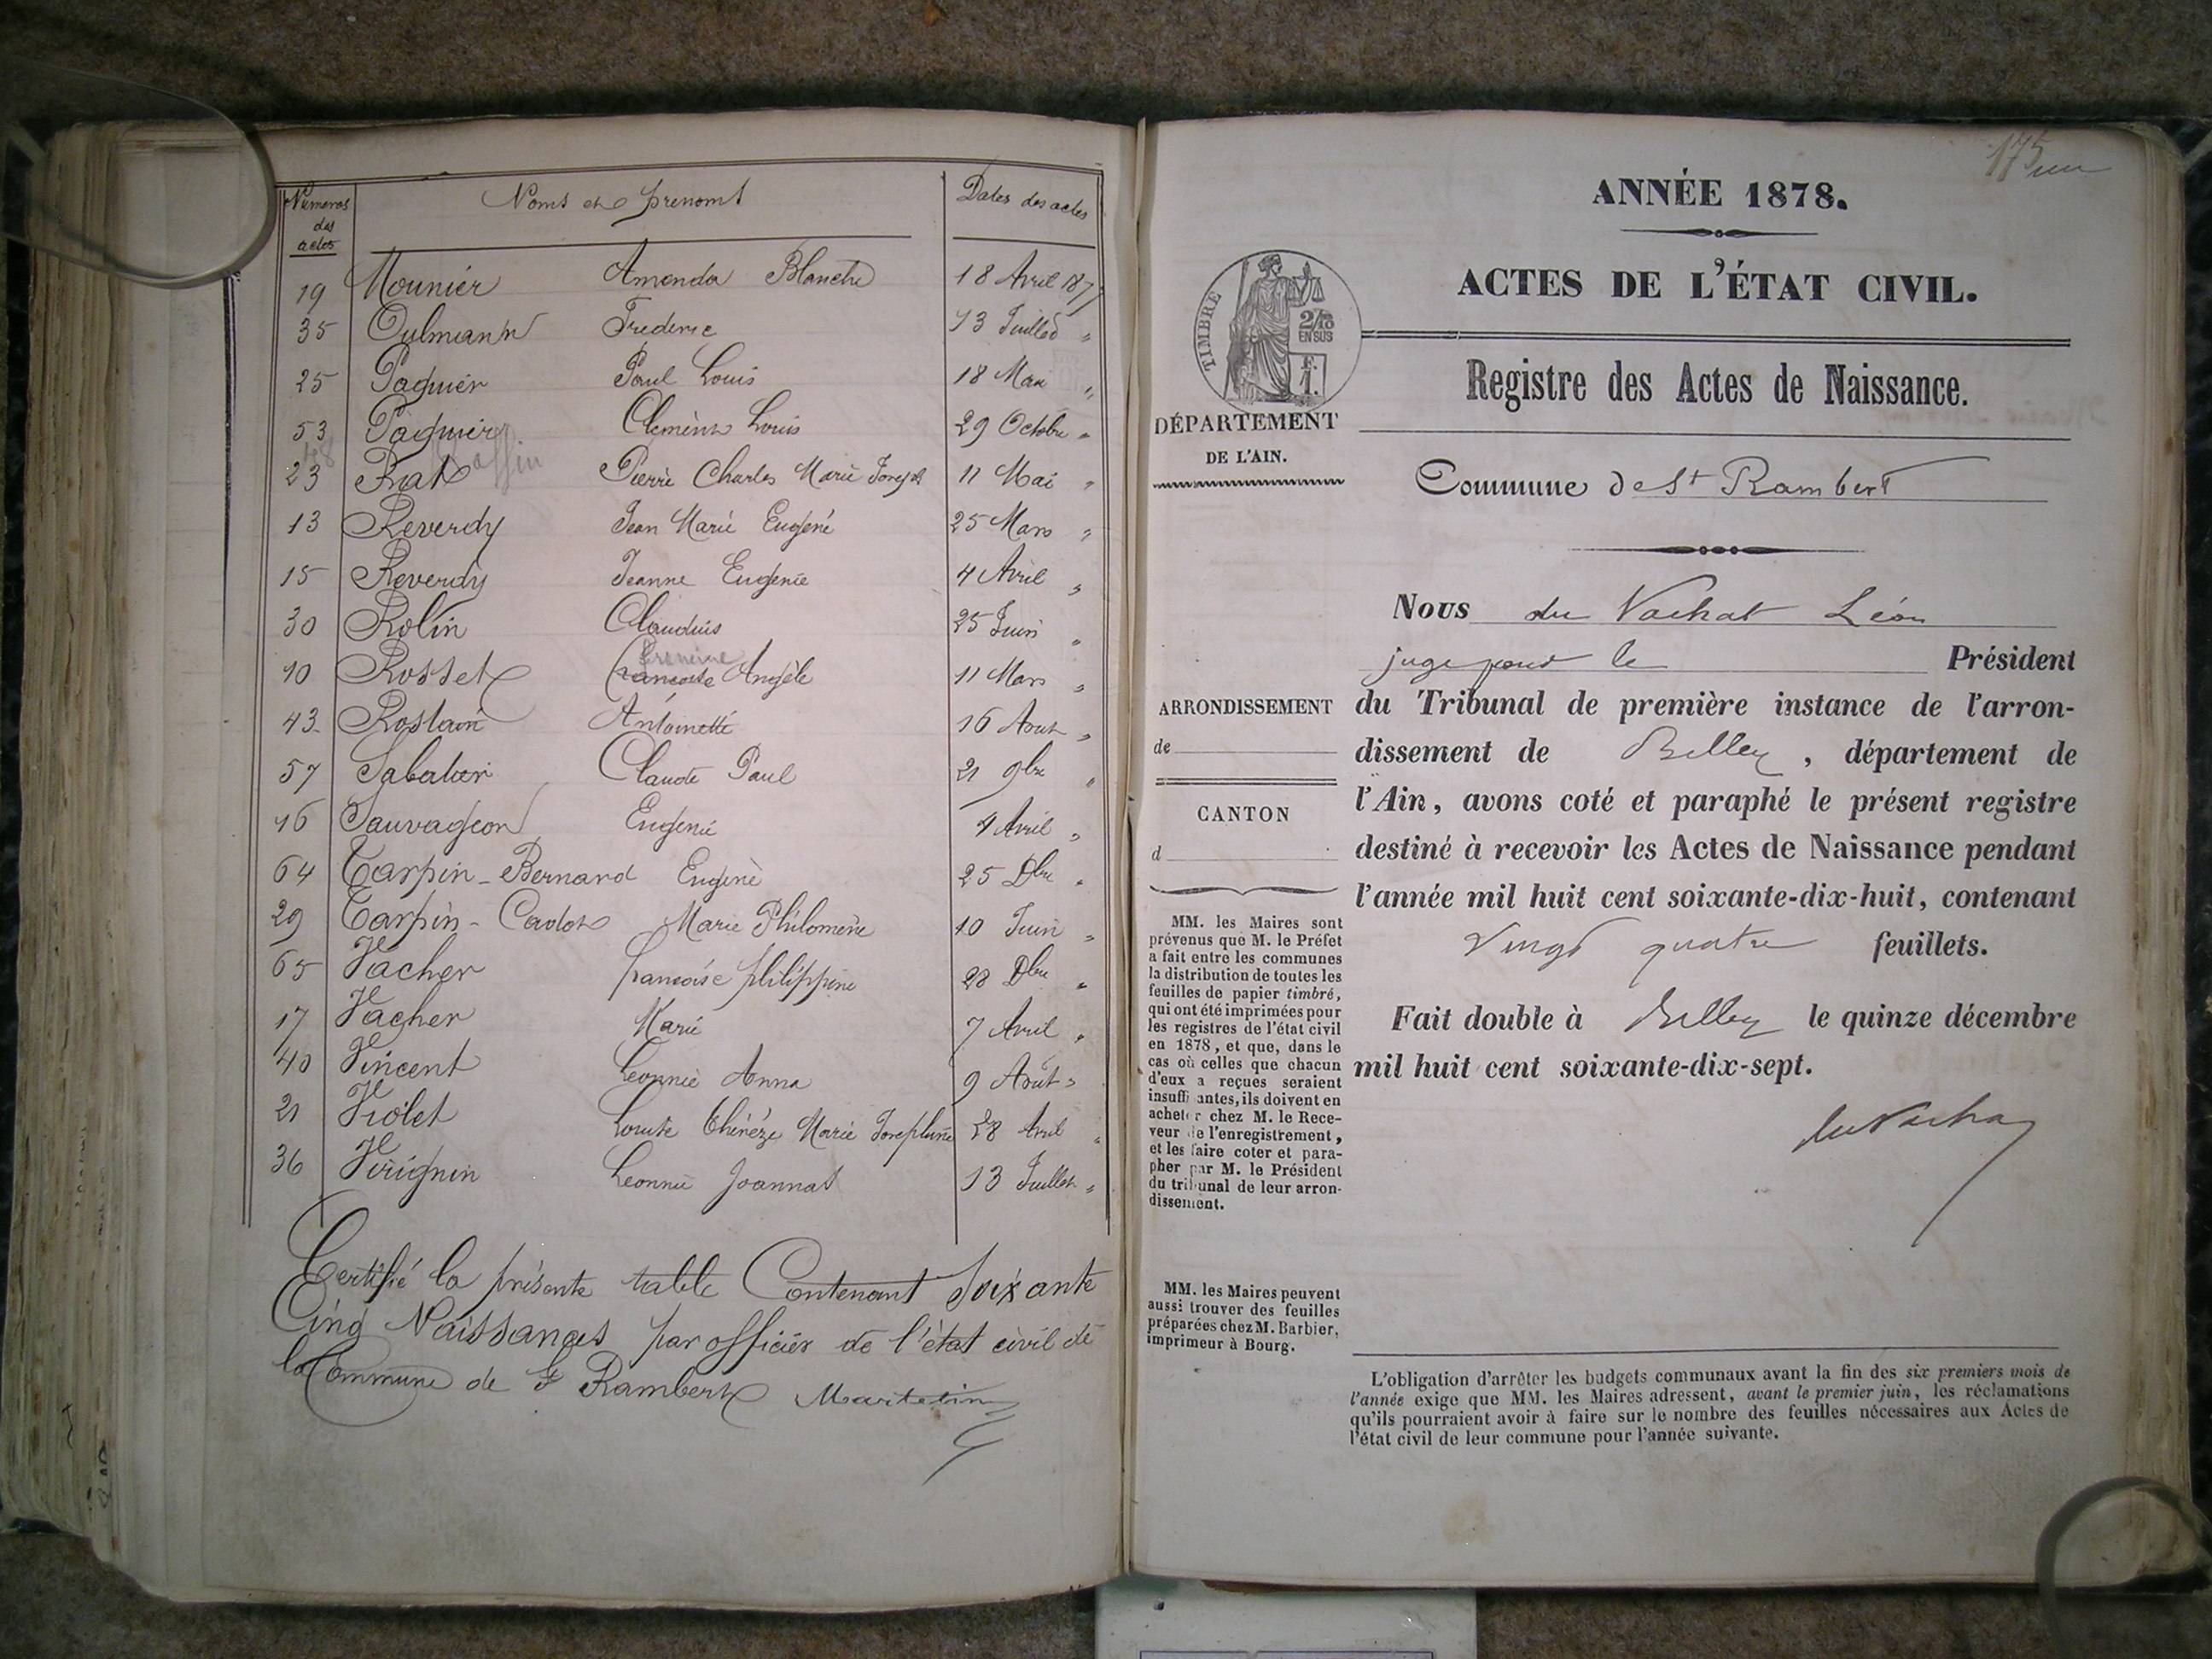 Numeros des actes Noms et prenoms Dates des actes
19 Mounier Amenda Blanche 18 Avril 1877
35 Oulmann Frederic 13 Juillet "
25 Paguier Paul Louis 18 Mai "
53 Paguier Clement Louis 29 Octobre "
48 Raffin
23 Rat Pierre Charles Marie Joseph 11 Mai "
13 Reverdy Jean Marie Eugène 25 Mars "
15 Reverdy Jeanne Eugenie 4 Avril "
30 Rolin Claudius 25 Juin "
10 Rosset Francoise Angèle 11 Mars "
43 Rostain Antoinette 16 Aout "
57 Sabatier Claude Paul 21 9bre "
16 Sauvageon Eugenie 4 Avril "
64 Tarpin - Bernard Eugène 25 Dbre "
29 Tarpin - Marie Philomène 10 Juin "
65 Vacher francoise philippine 28 Dbre "
17 Vacher Marie 7 Avril "
40 Vincent Leonnie Anna 9 Août "
21 Violet Louise Thérèze Marie Josephine 28 Avril "
36 Virignin Leonnie Joannas 13 Juillet "
Certifié la présente table Contenant Soixante
Cinq Naissances par officier de l'état civil de
la Commune de St Rambert Martelin
175
ANNÉE 1878.
ACTES DE L'ÉTAT CIVIL.
TIMBRE
2/10
EN SUS
F.
1.
Registre des Actes de Naissance.
DÉPARTEMENT
DE L'AIN.
Commune de St Rambert
Nous du Vachat Léon
juge pour le Président
ARRONDISSEMENT
de
CANTON
d
du Tribunal de première instance de l'arron-
dissement de Belley, département de
l'Ain, avons coté et paraphé le présent registre
destiné à recevoir les Actes de Naissance pendant
l'année mil huit cent soixante-dix-huit, contenant
Vingt quatre feuillets.
Fait double à Belley le quinze décembre
mil huit cent soixante-dix-sept.
du Vachat
MM. les Maires sont
prévenus que M. le Préfet
a fait entre les communes
la distribution de toutes les
feuilles de papier timbré,
qui ont été imprimées pour
les registres de l'état civil
en 1878, et que, dans le
cas où celles que chacun
d'eux a reçues seraient
insuffisantes, ils doivent en
acheter chez M. le Rece-
veur de l'enregistrement,
et les faire coter et para-
pher par M. le Président
du tribunal de leur arron-
dissement.
MM. les Maires peuvent
aussi trouver des feuilles
préparées chez M. Barbier,
imprimeur à Bourg.
L'obligation d'arrêter les budgets communaux avant la fin des six premiers mois de
l'année exige que MM. les Maires adressent, avant le premier juin, les réclamations
qu'ils pourraient avoir à faire sur le nombre des feuilles nécessaires aux Actes de
l'état civil de leur commune pour l'année suivante.